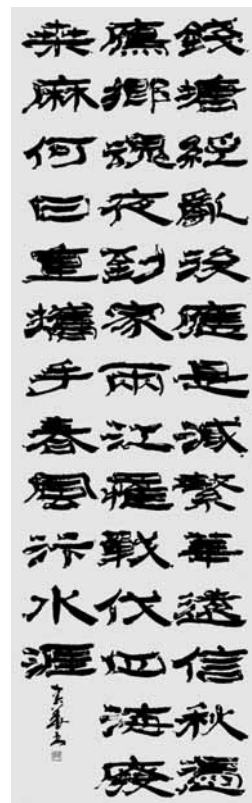 錢塘經亂後應是減繁華遠信秋憑
鴈鄉魂夜到家兩江猶戰伐四海廢
桒麻何日重攜手春風汴水涯